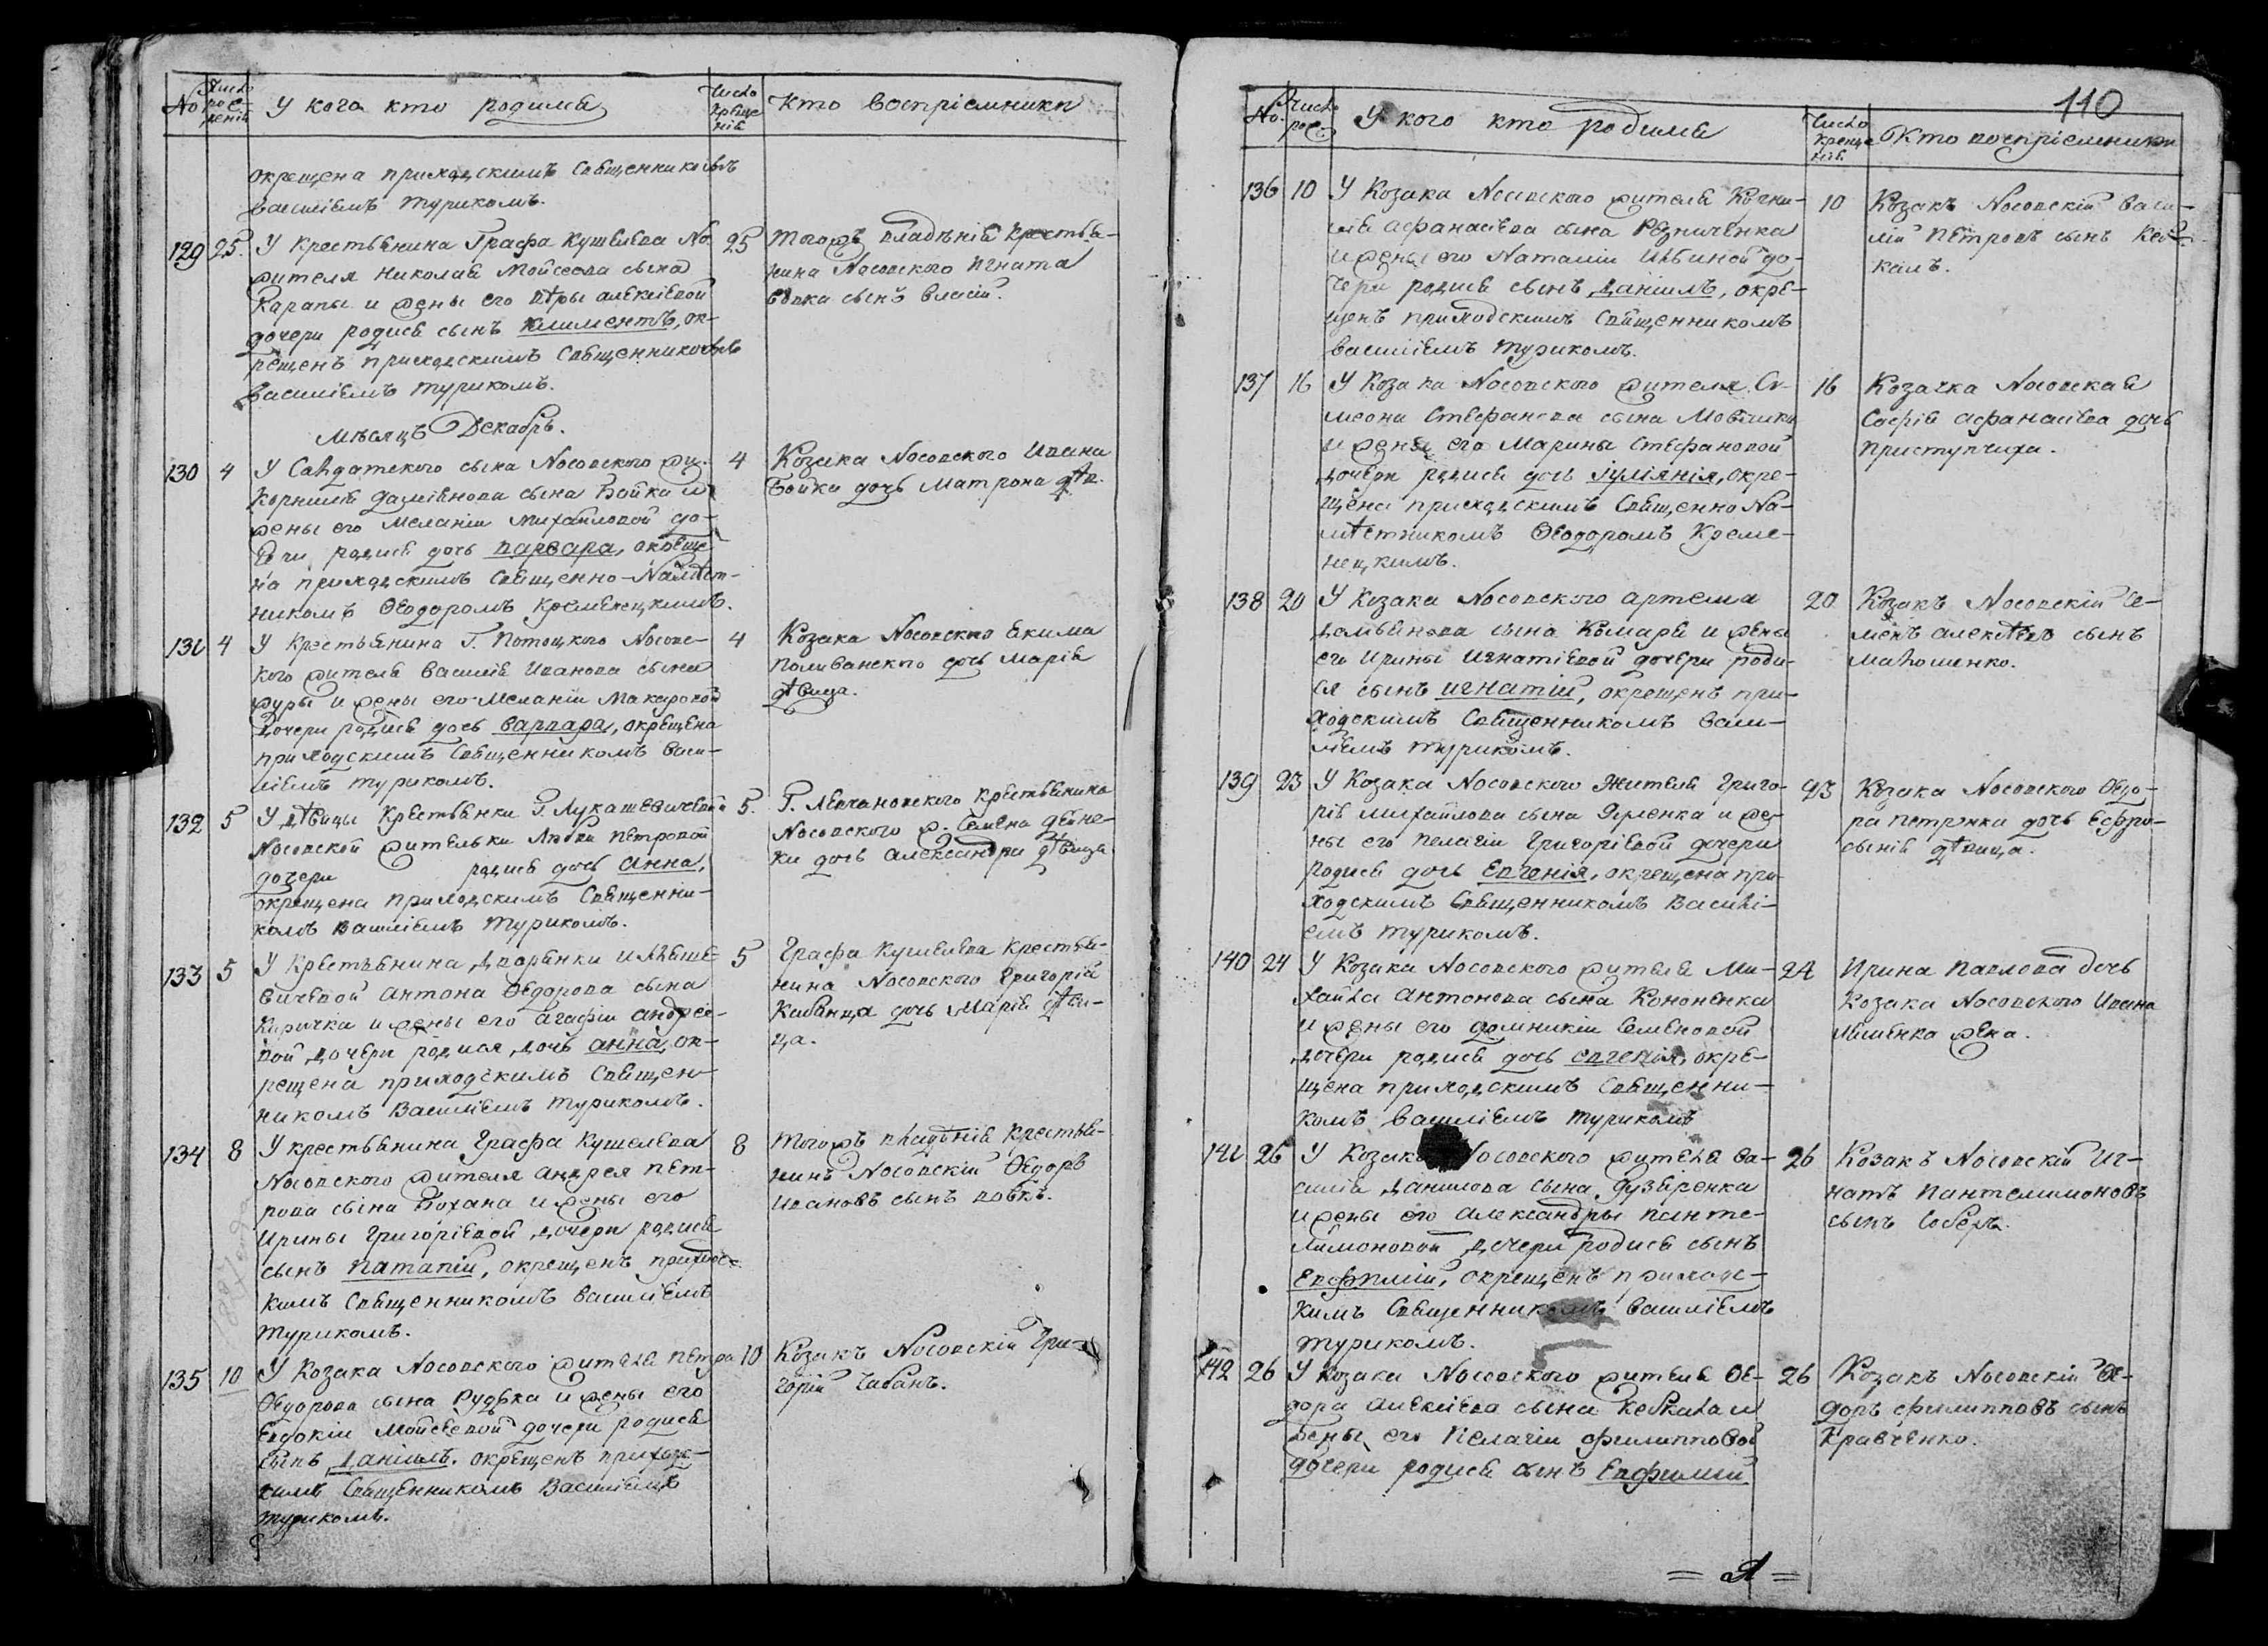 110
No
Число рож-
денія
У кого кто родился
Число
креще
нія
Кто воспріемники
окрещена приходскимъ Священникомъ
Василіемъ Туриком.
129 25. У крестьянина Графа Кушелева No.
жителя Николая Мойсеева сына
Карапы и жены его Вѣры Алексіевой
дочери родися сынъ Климентъ, ок-
рещенъ приходскимъ Священникомъ
Василіемъ Туриком.
25 Тогожъ владѣнія крестья-
нина Носовского Игната
сынъ Власій.
Мѣсяцъ Декабрь.
130 4 У Салдатского сына Носовского жи.
Корнилія Даміянова сына Бойка и
жены его Меланіи Михайловой до-
чери, родися дочь Варвара, окреще
на приходскимъ Священно-Намѣст-
никомъ Ѳеодоромъ Кремѣнецкимъ.
4 Козака Носовского Ивана
Бойка дочь Матрона дѣв.
131 4 У Крестьянина Г. Потоцкого Носовс-
кого жителя Василія Иванова сына
Журы и жены его Меланіи Макаровой
дочери родися дочь Варвара, окрещена
приходскимъ Священникомъ Васи-
ліемъ Туриком.
4 Козака Носовского Екима
Поливанского дочь Марія
дѣвица.
132 5 У дѣвицы Крестьянки Г. Лукашевичевой
Носовской жительки Любви Петровой
дочери родися дочь Анна,
окрещена приходскимъ Священни-
комъ Василіемъ Туриком.
5. Г. Левчановского крестьянина
Носовского ж. Семена Дейне-
ки дочь Александра дѣвица
133 5 У Крестьянина Дворянки Ильяше-
вичевой Антона Ѳедорова сына
Киричка и жены его Агафіи Андрее-
вой дочери родися дочь Анна, ок-
рещена приходскимъ Священ-
никомъ Василіемъ Туриком.
5 Графа Кушелева крестья-
нина Носовского Григорія
Кабанца дочь Марія дѣви-
ца.
134 8 У крестьянина Графа Кушелева
Носовского жителя Андрея Пет-
рова сына Бохана и жены его
Ирины Григоріевой дочери родися
сынъ Патапій, окрещенъ приходс-
кимъ Священникомъ Василіемъ
Туриком.
8 Тогожъ владѣнія крестья-
нинъ Носовскій Ѳедоръ
Ивановъ сынъ Вовкъ.
135 10 У Козака Носовского жителя Петра
Ѳедорова сына Рудька и жены его
Евдокіи Мойсеевой дочери родися
сынъ Даніилъ. окрещенъ приходс-
кимъ Священникомъ Василіемъ
Туриком.
10 Козакъ Носовскій Гри-
горій Чабанъ.
No.
Число
рож
У кого кто родился
Число
креще
нія.
Кто воспріемники
136 10 У Козака Носовского жителя Корни-
лія Афанасіева сына Резниченка
и жены его Наталіи Ильиной до-
чери родися сынъ Даніилъ, окре-
щенъ приходскимъ Священникомъ
Василіемъ Туриком.
10 Козакъ Носовскій Васи-
лій Петровъ сынъ
137 16 У Козака Носовского жителя Си-
меона Стефанова сына Мовчика
и жены его Марины Стефановой
дочери родися дочь Іуліянія, окре-
щена приходскимъ Священно На-
мѣстникомъ Ѳеодоромъ Креме-
нецкимъ.
16 Козачка Носовская
Софія Афанасіева дочь
Приступчиха.
138 20 У Козака Носовского Артема
Дамьянова сына Комара и жены
его Ирины Игнатіевой дочери роди-
ся сынъ Игнатій, окрещенъ при-
ходскимъ Священникомъ Васи-
ліемъ Туриком.
20 Козакъ Носовскій Се-
менъ Алексѣевъ сынъ
Малошенко.
139 23 У Козака Носовского Жителя Григо-
рія Михайлова сына Яременка и же-
ны его Пелагіи Григоріевой дочери
родися дочь Евгенія, окрещена при-
ходскимъ Священникомъ Василі-
емъ Туриком.
23 Козака Носовского Ѳедо-
ра Петренка дочь Ефро-
синія дѣвица.
140 24 У Козака Носовского жителя Ми-
хайла Антонова сына Кононенка
и жены его Домникіи Семеновой
дочери родися дочь Евгенія, окре-
щена приходскимъ Священни-
комъ Василіемъ Туриком
24 Ирина Павлова дочь
Козака Носовского Ивана
жена.
141 26 У Козака Носовского жителя Ва-
силія Данилова сына Пузыренка
и жены его Александры Панте-
лимоновой дочери родися сынъ
Евфимій, окрещенъ приходс-
кимъ Священникомъ Василіемъ
Туриком.
26 Козакъ Носовскій Иг-
натъ Пантелимоновъ
сынъ Соболь.
142 26 У Козака Носовского жителя Ѳе-
дора Алексіева сына Кевкала и
жены его Пелагіи Филипповой
дочери родися сынъ Евфимій
26 Козакъ Носовскій Ѳе-
доръ Филипповъ сынъ
Кравченко.